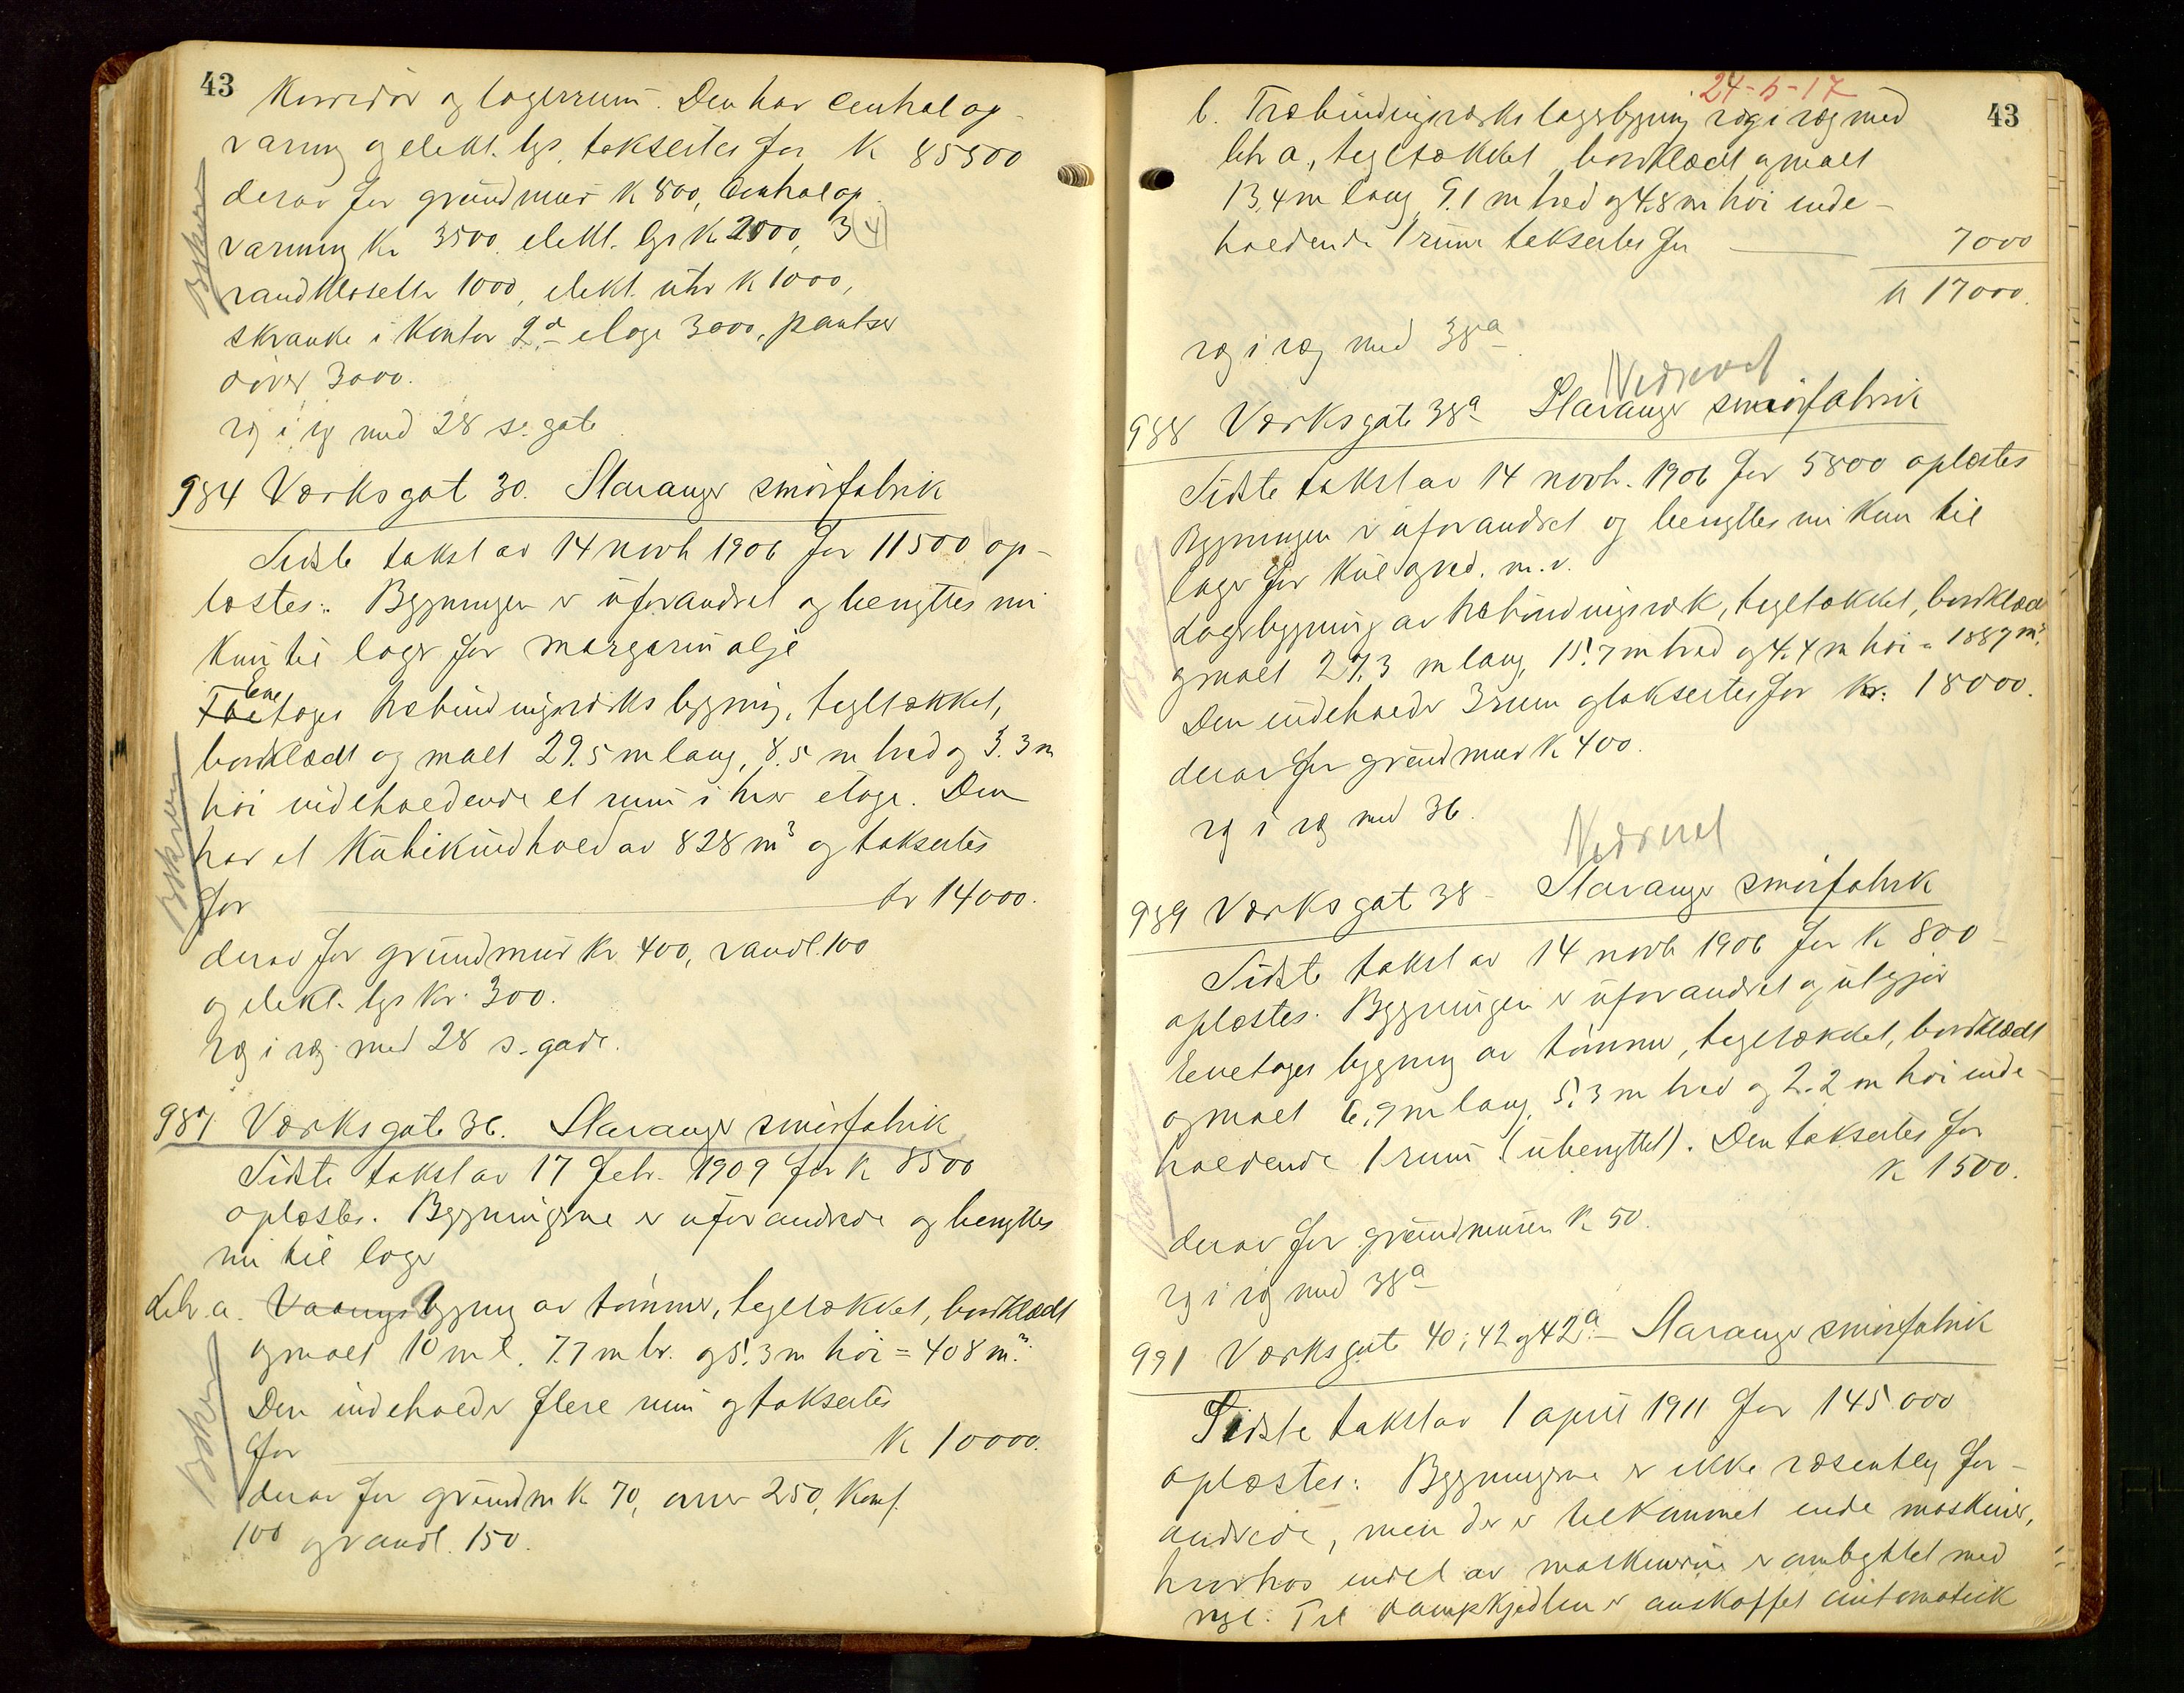 43
Korridor og lagerrum. Den har centralop-
varmg og elekt. lys, takseres for K 85500
derav for grundmur K 800, Centralop
varmng Kr 3500, elekt. lys K 2500, 3 (4)
vandklosetter 1000, elekt. utr K 1000,
skranke i Kontor 2d etage 3000, pantser
dører 3000.
væg i væg med 28 s. gate
984 Værksgat 30. Stavanger smørfabrik
Sidste takst av 14 novb 1906 for 11500 op-
læstes. Bygningen er uforandret og benyttes nu
kun til lager for margarinolje
Toe Eenetages træbindingsværks bygning, tegltækket,
bordklædt og malt 29.5 m lang, 8.5 m bred og 3.3 m
høi indeholdende et rum i hver etage. Den
har et Kubikindhold av 828 m3 og takseres
for kr 14000.
derav for grundmur Kr. 400, vandl. 100
og elekt. lys Kr. 300.
Væg i væg med 28 s. gade.
987 Værksgate 36. Stavanger smørfabrik
Sidste takst av 17 febr. 1909 for K 8500
oplæstes. Bygningerne er uforandrede og benyttes
nu til lager
Litr. a. Vaanings bygning av tømmer, tegltækket, bordklædt
og malt 10 m l. 7.7 m br. og 5.3 m høi = 408 m3.
Den indeholder flere rum og takseres
for K 10000.
derav for grundm K 70, ovner 250, Komf.
100 og vandl. 150.
Bokser
Bokser
Bokser
24-5-17
43
b. Træbindingsværks lagerbygning væg i væg med
litr a, tegltækket, bordklædt og malt
13,4 m lang, 9.1 m bred og 4.8 m høi inde-
holdende 1 rum takseres for 7000
K 17000.
væg i væg med 38a
Nedrevet
988 Værksgate 38a Stavanger smørfabrik
Sidste takst av 14 novb. 1906 for 5800 oplæstes
Bygningen er uforandret og benyttes nu kun til
lager for kul og ved. m.v.
Lagerbygning av træbindingsværk, tegltækket, bordklædt
og malt 27.3 m lang, 15.7 m bred og 4.4 m høi = 1887 m3.
Den indeholder 3 rum og takseres for Kr. 18000.
derav for grundmur K 400.
væg i væg med 36.
Nedrevet
989 Værksgat 38 - Stavanger smørfabrik
Sidste takst av 14 novb 1906 for K 800 -
oplæstes. Bygningen er uforandret og utgjør
Eenetages bygning av tømmer, tegltækket, bordklædt
og malt 6,9 m lang, 5.3 m bred og 2.2 m høi inde-
holdende 1 rum (ubenyttet). Den takseres for
K 1500.
derav for grundmuren K 50.
væg i væg med 38a
991 Værksgate 40, 42 og 42a - Stavanger smørfabrik
Sidste takst av 1 april 1911 for 145000
oplæstes: Bygningerne er ikke væsentlig for-
andrede, men der er tilkommet endel maskiner,
hvorhos endel av maskinerne er ombyttet med
nye. Til dampkjedlen er anskaffet automatisk